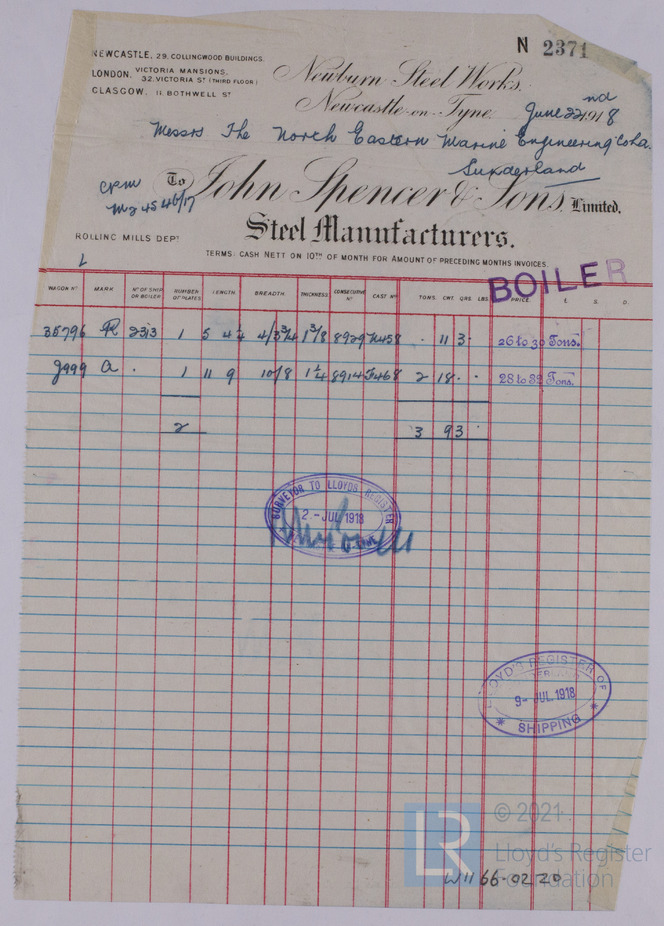 N 2371
NEWCASTLE, 29, COLLINGWOOD BUILDINGS.
LONDON, VICTORIA MANSIONS, 32, VICTORIA ST (THIRD FLOOR)
GLASGOW, 11, BOTHWELL ST
Newburn Steel Works,
Newcastle-on-Tyne, June 22nd 1918
Messrs The North Eastern Marine Engineering Co Ld.
Sunderland
To John Spencer & Sons, Limited,
Steel Manufacturers.
ROLLING MILLS DEPT
TERMS: CASH NETT ON 10TH OF MONTH FOR AMOUNT OF PRECEDING MONTHS INVOICES.
L
BOILER
WAGON No MARK No OF SHIP OR BOILER NUMBER OF PLATES LENGTH BREADTH THICKNESS CONSECUTIVE No CAST No TONS. CWT. QRS. LBS. PRICE. £. S. D.
35796 R 2313 1 5 4 1/4 4/3 3/4 1 3/8 8929 . 11 3 . 26 to 30 Tons.
9999 a . 1 11 9 10/8 1 1/4 8914 2 18 . . 28 to 32 Tons.
2 3 9 3
SURVEYOR TO LLOYDS REGISTER
2 - JUL 1918
LLOYD'S REGISTER OF
9 - JUL. 1918
* SHIPPING *
LR
© 2021
Lloyd's Register
Foundation
W1166-0220